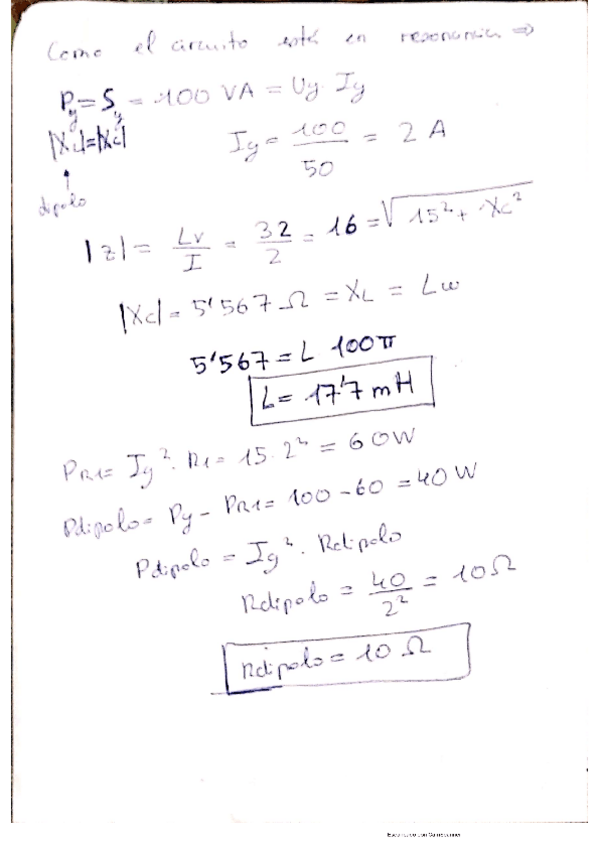 Como el circuito está en resonancia ⇒
Pg = Sg = 100 VA = Ug · Ig
|XL|=|Xc|
Ig = 100/50 = 2 A
dipolo
|Z| = Lv/I = 32/2 = 16 = √15² + Xc²
|Xc| = 5'567 Ω = XL = Lω
5'567 = L 100π
L = 17'7 mH
PR1 = Ig² · R1 = 15 · 2² = 60W
Pdipolo = Pg - PR1 = 100 - 60 = 40 W
Pdipolo = Ig² · Rdipolo
Rdipolo = 40/2² = 10 Ω
Rdipolo = 10 Ω
Escaneado con CamScanner